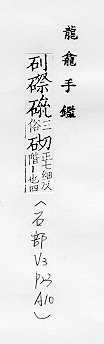 龍龕手鑑
磜 三俗 砌 正七細反階丨也四
(石部 V3 P23 A10)